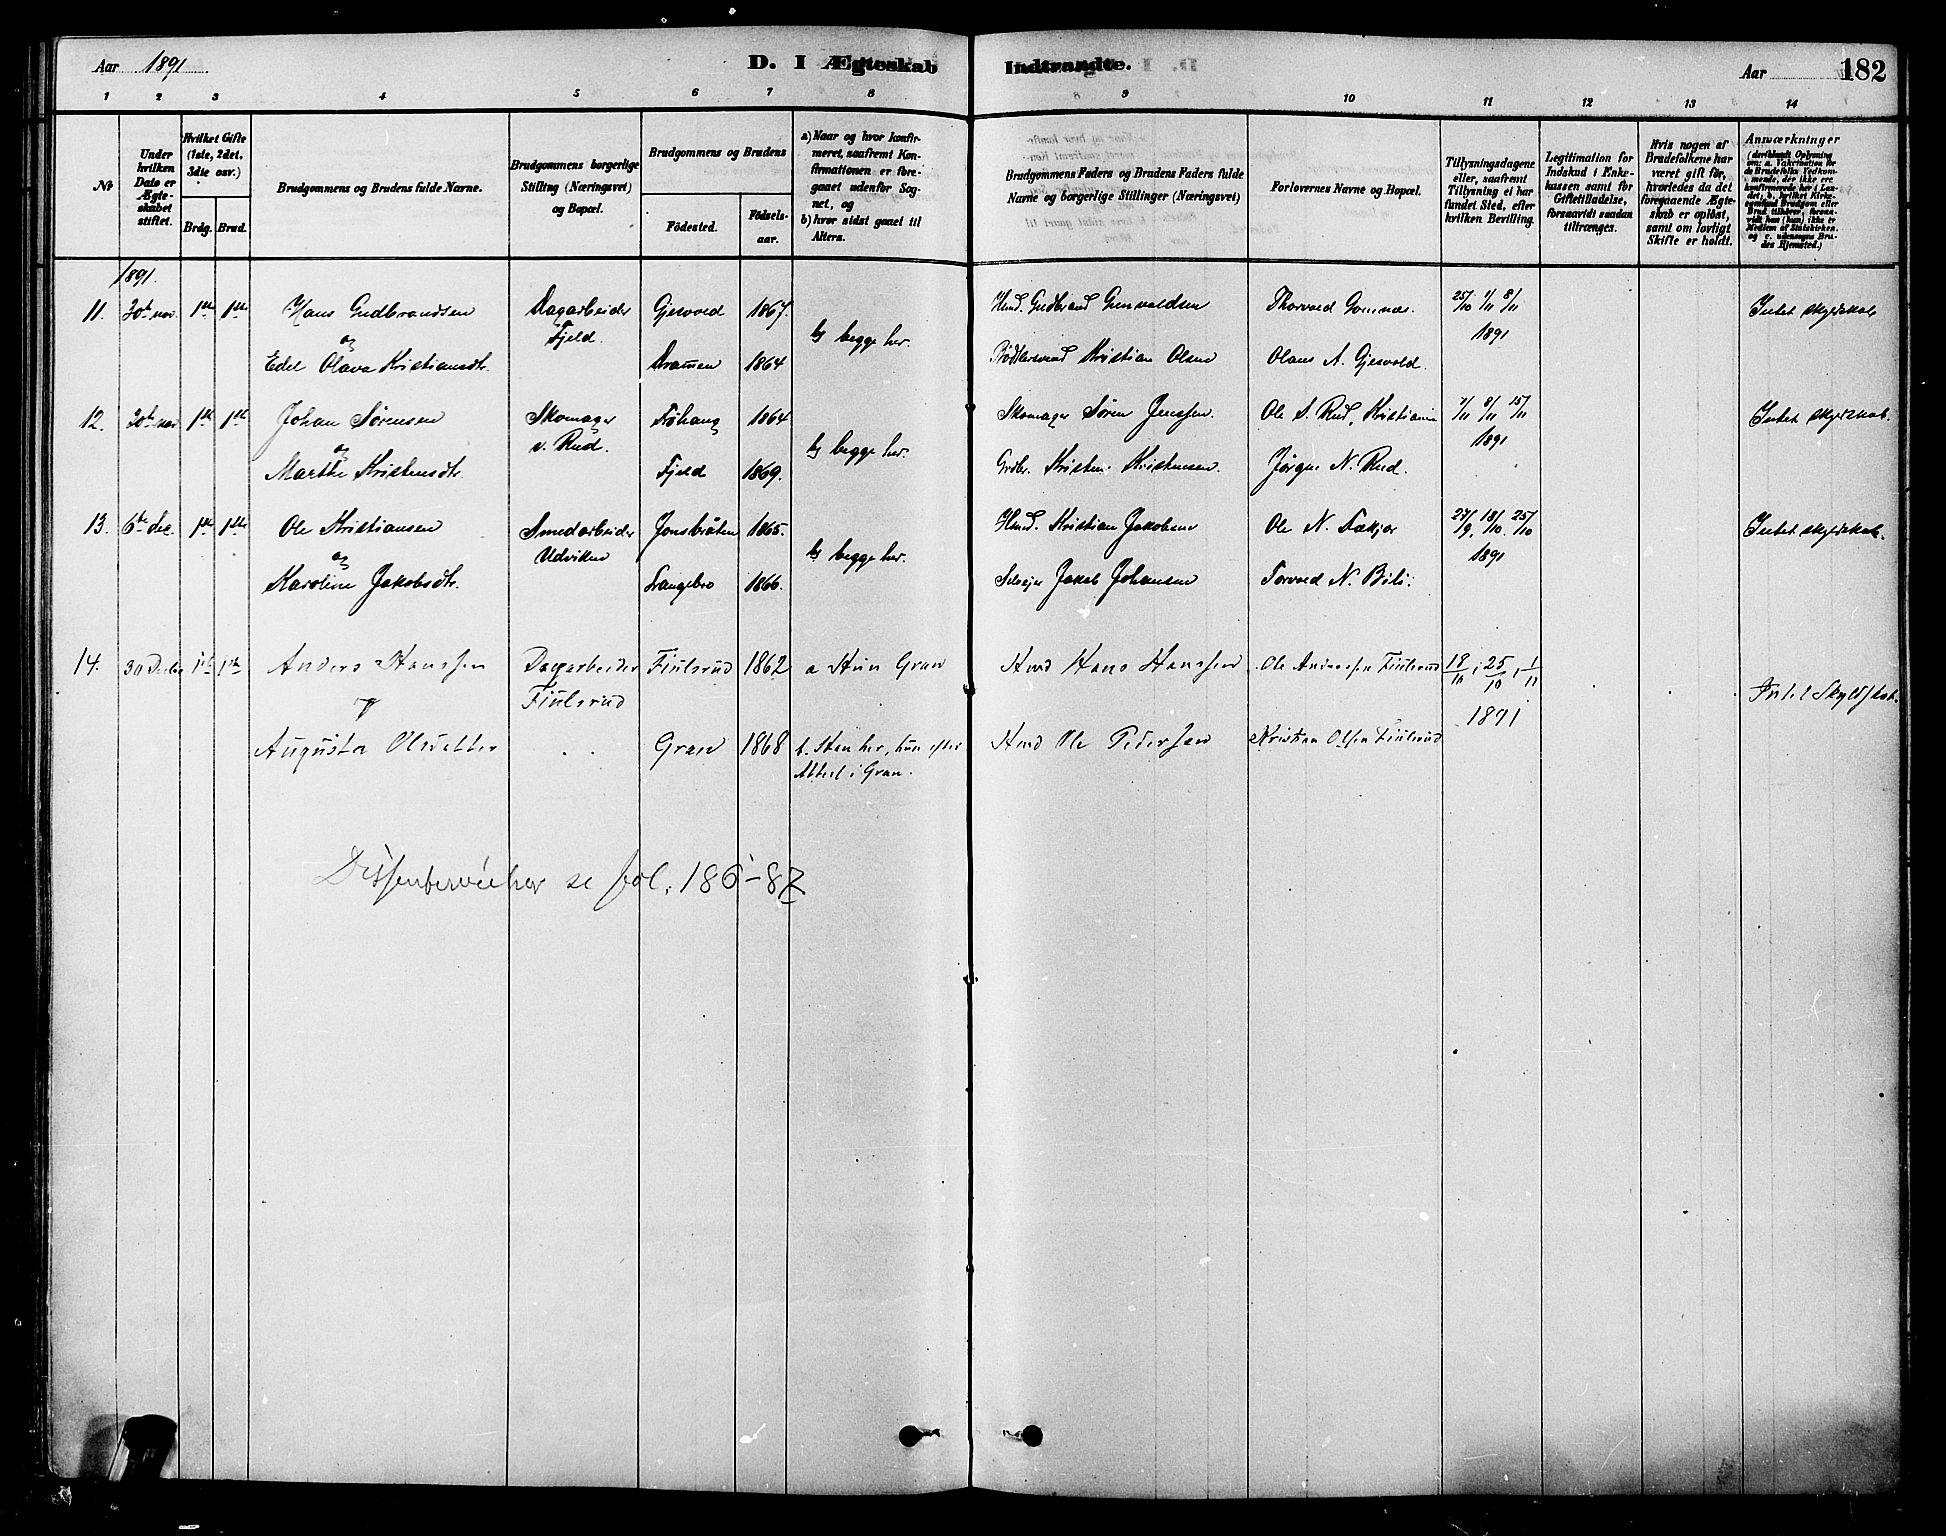 Aar 1891 D. I Ægteskab Indtraadte. Aar 182
1 2 3 4 5 6 7 8 9 10 11 12 13 14
№
Under hvilken Dato er Ægteskabet stiftet.
Hvilket Gifte (1ste, 2det, 3die osv.)
Brdg. Brud.
Brudgommens og Brudens fulde Navne.
Brudgommens borgerlige Stilling (Næringsvei) og Bopæl.
Brudgommens og Brudens
Födested. Födselsaar.
a) Naar og hvor konfirmeret, saafremt Konfirmationen er foregaaet udenfor Sognet, og
b) hvor sidst gaaet til Alters.
Brudgommens Faders og Brudens Faders fulde Navne og borgerlige Stillinger (Næringsvei)
Forlovernes Navne og Bopæl.
Tillysningsdagene eller, saafremt Tillysning ei har fundet Sted, efter hvilken Bevilling.
Legitimation for Indskud i Enkekassen samt for Giftetilladelse, forsaavidt saadan tiltrænges.
Hvis nogen af Brudefolkene har været gift før, hvorledes da det foregaaende Ægteskab er opløst, samt om lovligt Skifte er holdt.
Anmærkninger
1891.
11. 20de nov. 1ste 1ste Hans Gudbrandsen Dagarbeider Gjesvold 1867. Hmd. Gudbrand Gunvaldsen Thorvald Gomnæs. 25/10 1/11 8/11 Intet skyldskab
og Fjeld. b) begge her. 1891
Edel Olava Kristiansdtr. Drammen 1864 Bødkersvend Kristian Olsen Olaus A. Gjesvold.
12. 20de nov. 1ste 1ste Johan Sørensen Skomager Frøhaug 1864 Skomager Søren Jenssen. Ole S. Rud, Kristiania 1/11 8/11 15/11 Intet skyldskab.
og v. Rud. b) begge her. 1891
Marthe Kristensdtr. Fjeld 1869. Grdbr. Kristen Kristensen. Jørgen N. Rud.
13. 6te dec. 1ste 1ste Ole Kristiansen Smedarbeider Jonsbråten 1865. Hmd. Kristian Jakobsen Ole N. 27/9, 18/10. 25/10 Intet skyldskab.
og Udviken b) begge her. 1891
Karoline Jakobsdtr. Langebro 1866. Selveier Jakob Johansen Torvald N. Bili.
14. 30 Decbr 1ste 1ste Anders Hanssen Dagarbeider Fiulsrud 1862 a Hun Gran Hmd Hans Hanssen Ole Anderssen Fiulsrud 18/10, 25/10, 1/11
og Fiulsrud 1891 Intet Skyldskab.
Augusta Olsdatter Gran 1868 b. Han her, hun efter Attest i Gran. Hmd Ole Pedersen Kristian Olsen Fiulsrud
Dissentervielser se fol. 186-87